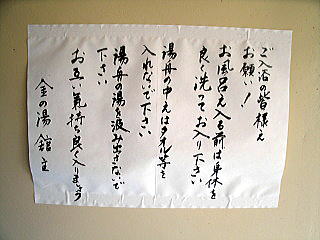 ご入浴の皆様え
お願い!
お風呂え入る前は身体を
良く洗ってお入り下さい
湯舟の中えはタオル等を
入れないで下さい
湯舟の湯を汲み出さないで
下さい
お互い気持ち良く入りましょう
金の湯館主